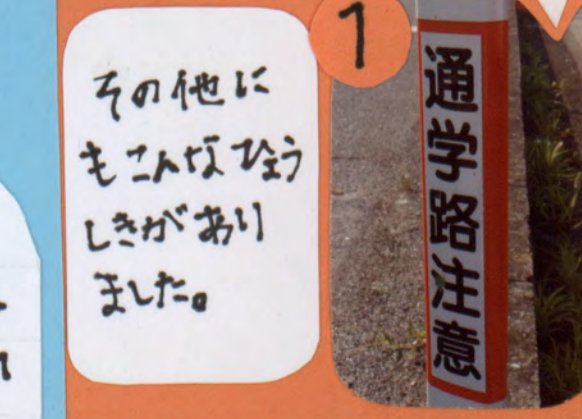 その他に
もこんなひょう
しきがあり
ました。
1
通学路注意